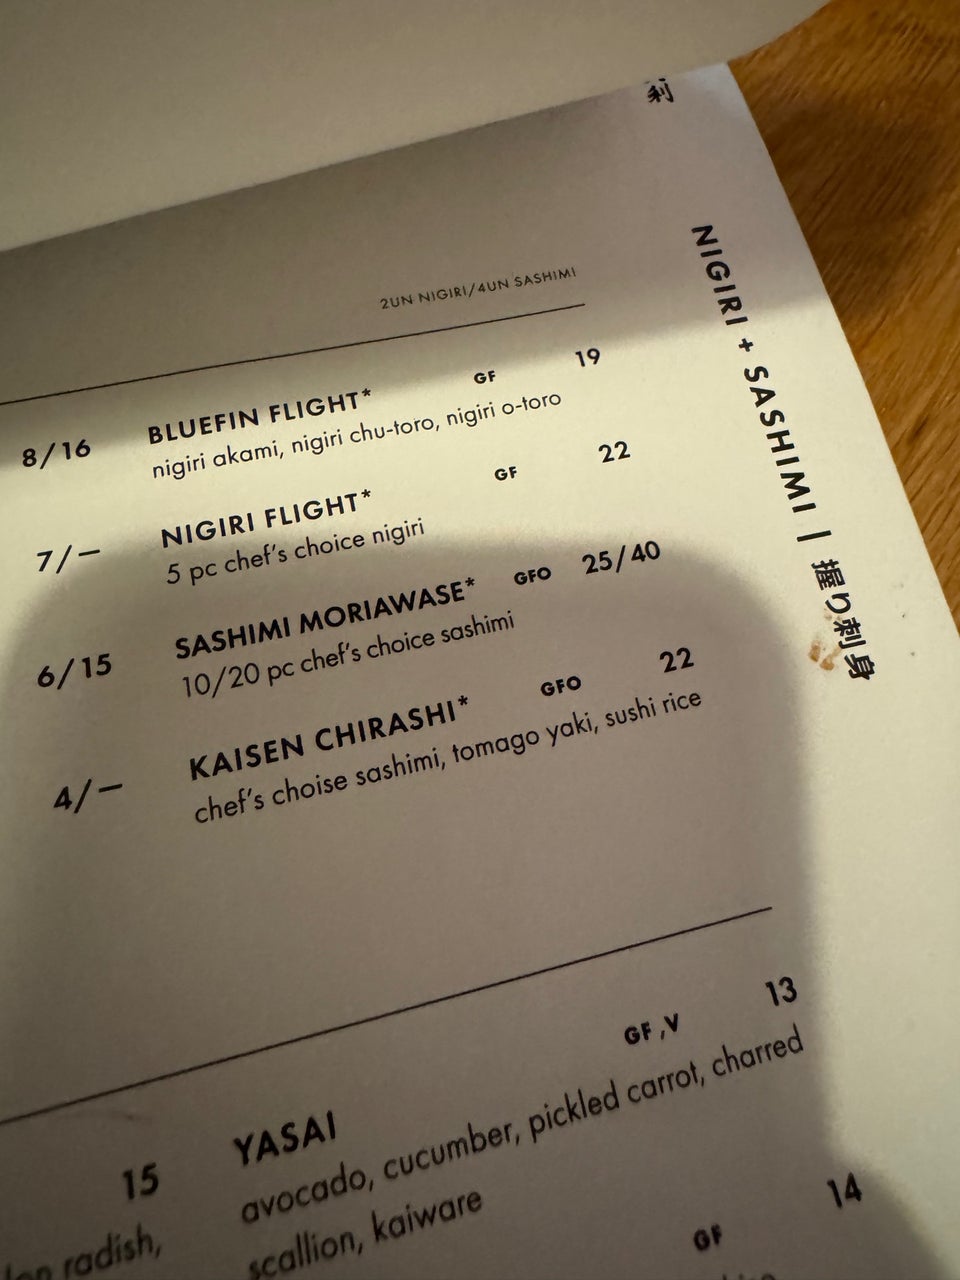 刺
NIGIRI + SASHIMI | 握り刺身
2UN NIGIRI/4UN SASHIMI
8/16
BLUEFIN FLIGHT* GF 19
nigiri akami, nigiri chu-toro, nigiri o-toro
7/–
NIGIRI FLIGHT* GF 22
5 pc chef's choice nigiri
6/15
SASHIMI MORIAWASE* GFO 25/40
10/20 pc chef's choice sashimi
4/–
KAISEN CHIRASHI* GFO 22
chef's choise sashimi, tomago yaki, sushi rice
15
radish,
YASAI GF ,V 13
avocado, cucumber, pickled carrot, charred
scallion, kaiware
GF 14